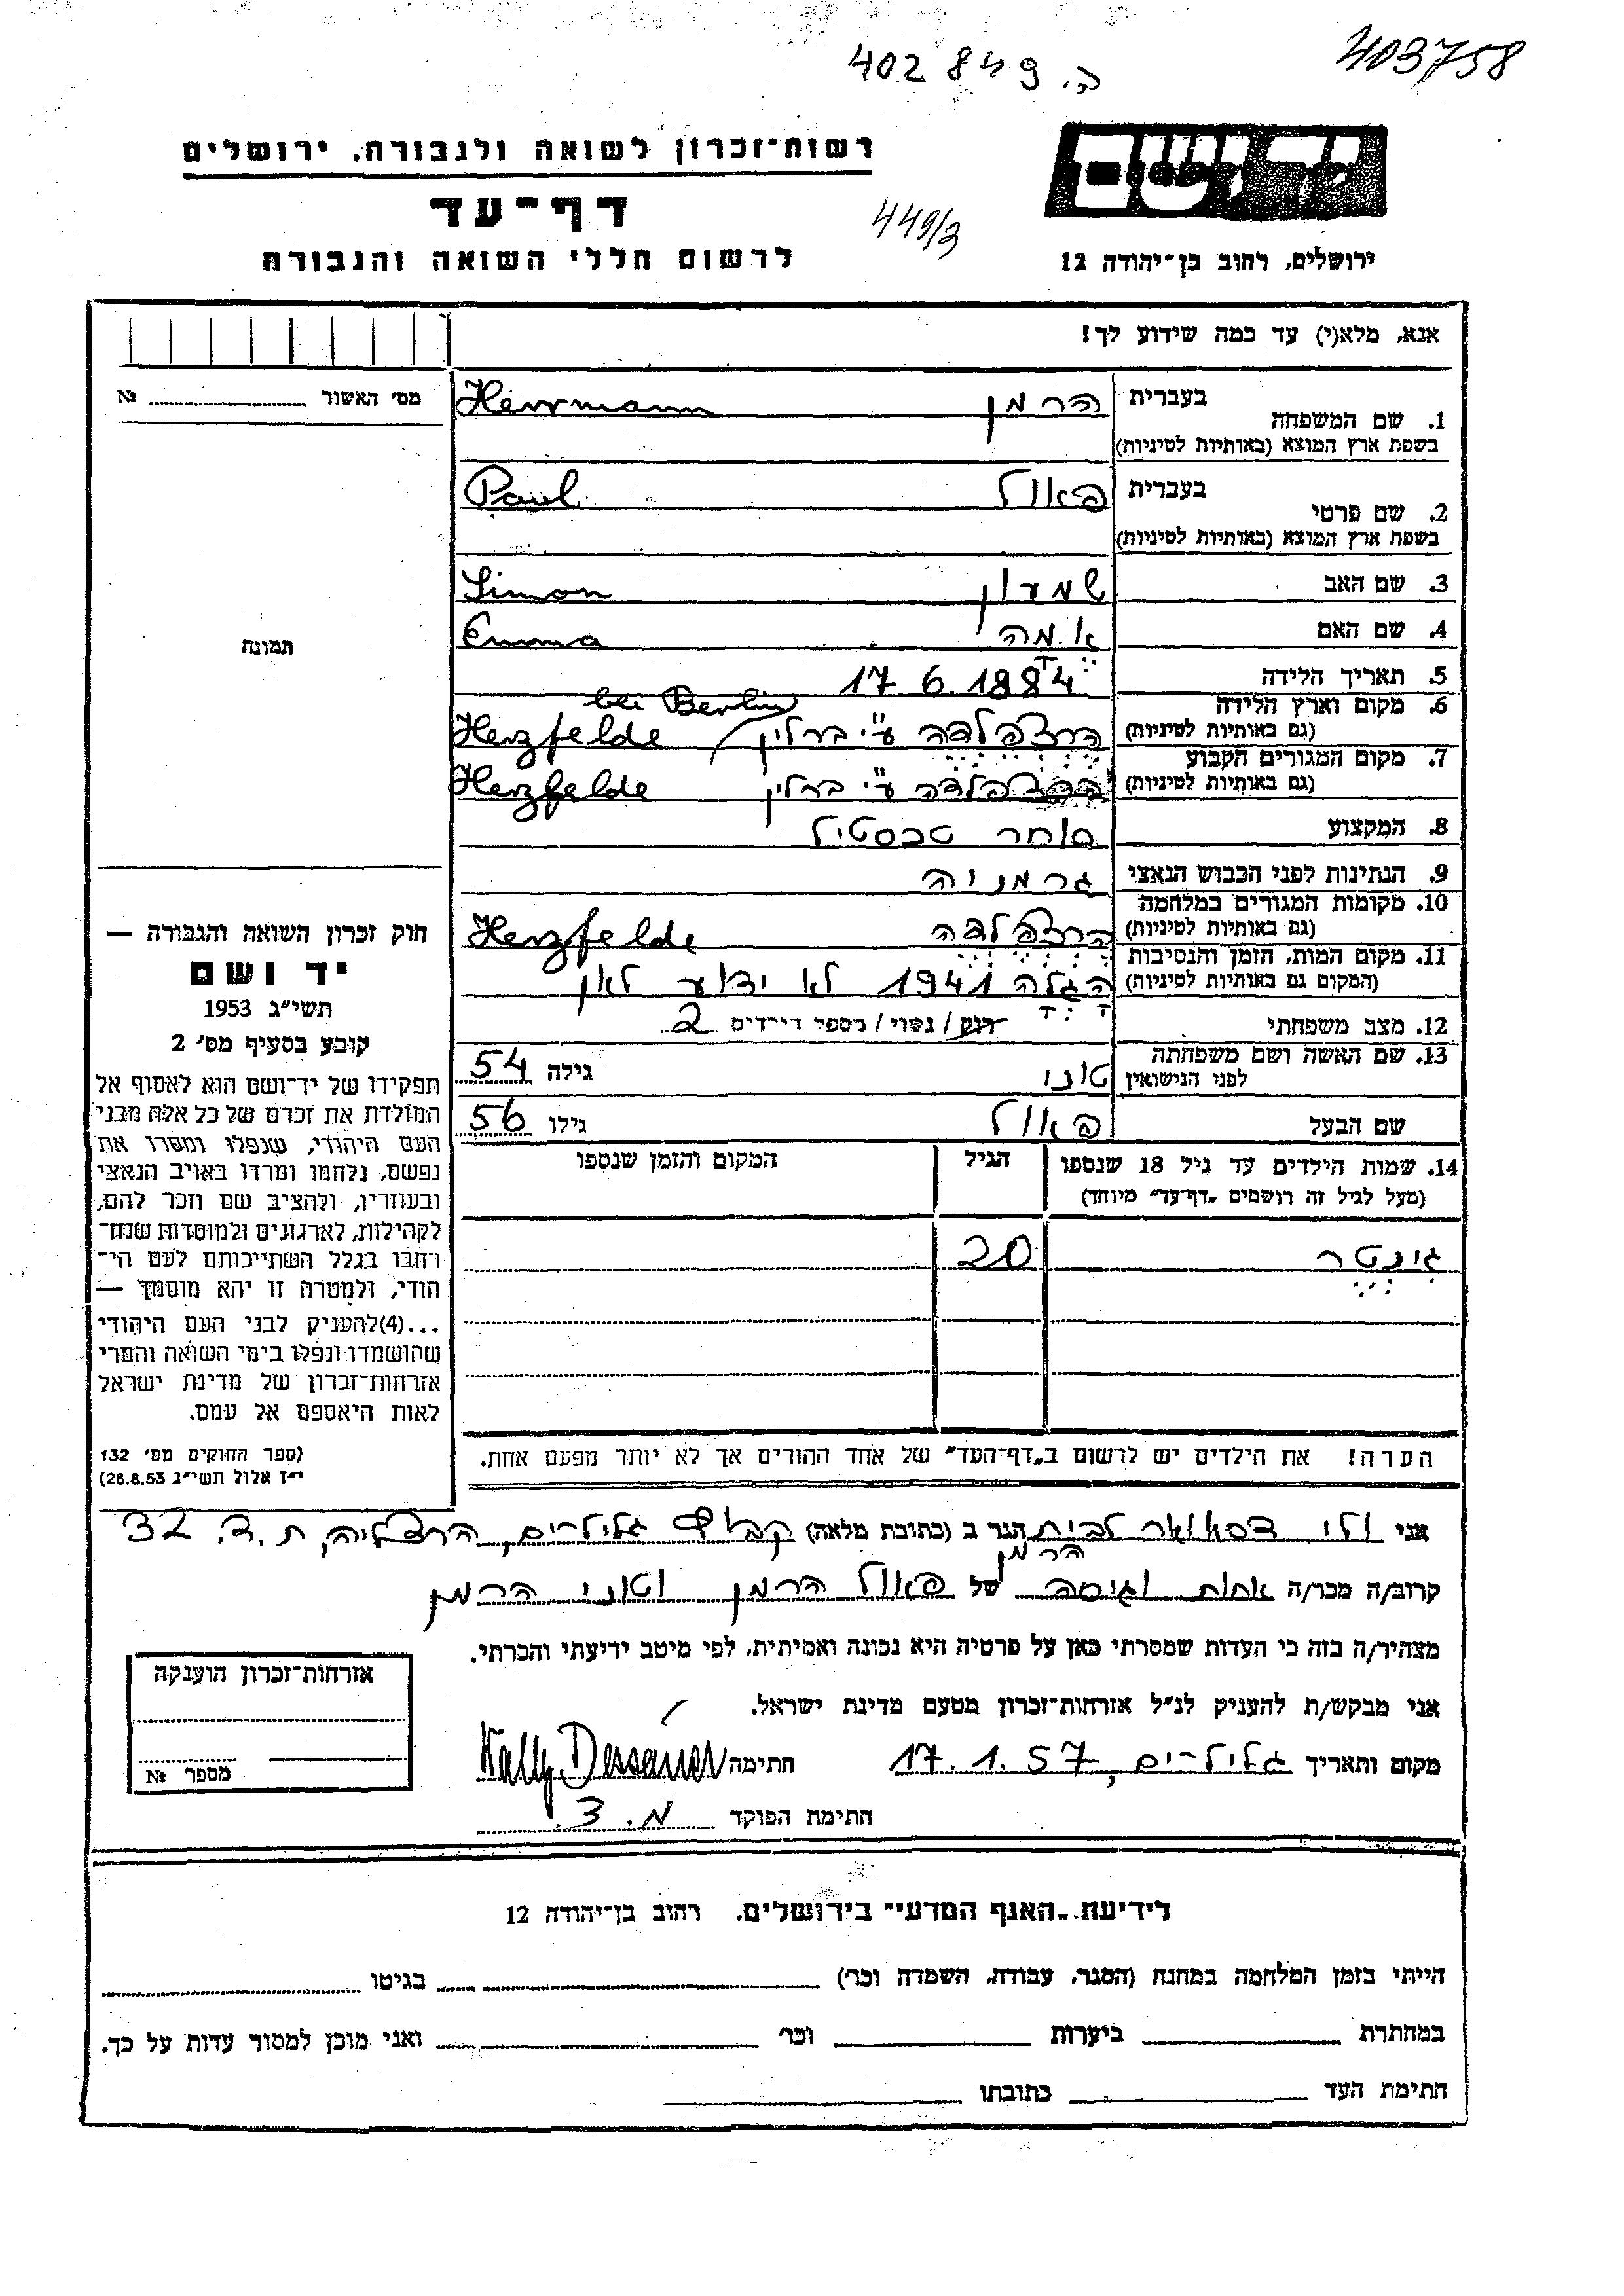 403758
402849 ה.
יד ושם
רשות־זכרון לשואה ולגבורה, ירושלים
דף־עד
449/3
לרשום חללי השואה והגבורה
ירושלים, רחוב בן־יהודה 12
אנא, מלא(י) עד כמה שידוע לך!
מס׳ האשור № 
1. שם המשפחה בעברית הרמן Herrmann
בשפת ארץ המוצא (באותיות לטיניות)
2. שם פרטי בעברית פאול Paul
בשפת ארץ המוצא (באותיות לטיניות)
3. שם האב שמעון Simon
4. שם האם אמה Emma
5. תאריך הלידה 17.6.1884
6. מקום וארץ הלידה הרצפלדה ע"י ברלין Herzfelde bei Berlin
(גם באותיות לטיניות)
7. מקום המגורים הקבוע הרצפלדה ע"י ברלין Herzfelde
(גם באותיות לטיניות)
8. המקצוע סוחר טכסטיל
9. הנתינות לפני הכבוש הנאצי גרמניה
10. מקומות המגורים במלחמה הרצפלדה Herzfelde
(גם באותיות לטיניות)
11. מקום המות, הזמן והנסיבות הגלה 1941 לא ידוע לאן
(המקום גם באותיות לטיניות)
12. מצב משפחתי רוק / נשוי / מספר הילדים 2
13. שם האשה ושם משפחתה טוני גילה 54
לפני הנישואין
שם הבעל פאול גילו 56
14. שמות הילדים עד גיל 18 שנספו הגיל המקום והזמן שנספו
(מעל לגיל זה רושמים „דף־עד״ מיוחד)
גינטר 20
הערה! את הילדים יש לרשום ב„דף־העד״ של אחד ההורים אך לא יותר מפעם אחת.
תמונה
חוק זכרון השואה והגבורה —
יד ושם
תשי״ג 1953
קובע בסעיף מס׳ 2
תפקידו של יד־ושם הוא לאסוף אל
המולדת את זכרם של כל אלה מבני
העם היהודי, שנפלו ומסרו את
נפשם, נלחמו ומרדו באויב הנאצי
ובעוזריו, ולהציב שם וזכר להם,
לקהילות, לארגונים ולמוסדות שנח־
רבו בגלל השתייכותם לעם הי־
הודי, ולמטרה זו יהא מוסמך —
...(4)להעניק לבני העם היהודי
שהושמדו ונפלו בימי השואה והמרי
אזרחות־זכרון של מדינת ישראל
לאות היאספם אל עמם.
(ספר החוקים מס׳ 132
י״ז אלול תשי״ג 28.8.53)
אני ולי דסאואר לבית הרמן הגר ב (כתובת מלאה) קבוץ גלילים, הרצליה, ת.ד. 32
קרוב/ה מכר/ה אחות וגיסה של פאול הרמן וטוני הרמן
מצהיר/ה בזה כי העדות שמסרתי כאן על פרטיה היא נכונה ואמיתית, לפי מיטב ידיעתי והכרתי.
אני מבקש/ת להעניק לנ״ל אזרחות־זכרון מטעם מדינת ישראל.
מקום ותאריך 17.1.57 חתימה Dessauer
חתימת הפוקד
אזרחות־זכרון הוענקה
מספר №
לידיעת „האגף המדעי״ בירושלים, רחוב בן־יהודה 12
הייתי בזמן המלחמה במחנה (הסגר, עבודה, השמדה וכו׳) בגיטו
במחתרת ביערות וכו׳ ואני מוכן למסור עדות על כך.
חתימת העד כתובתו